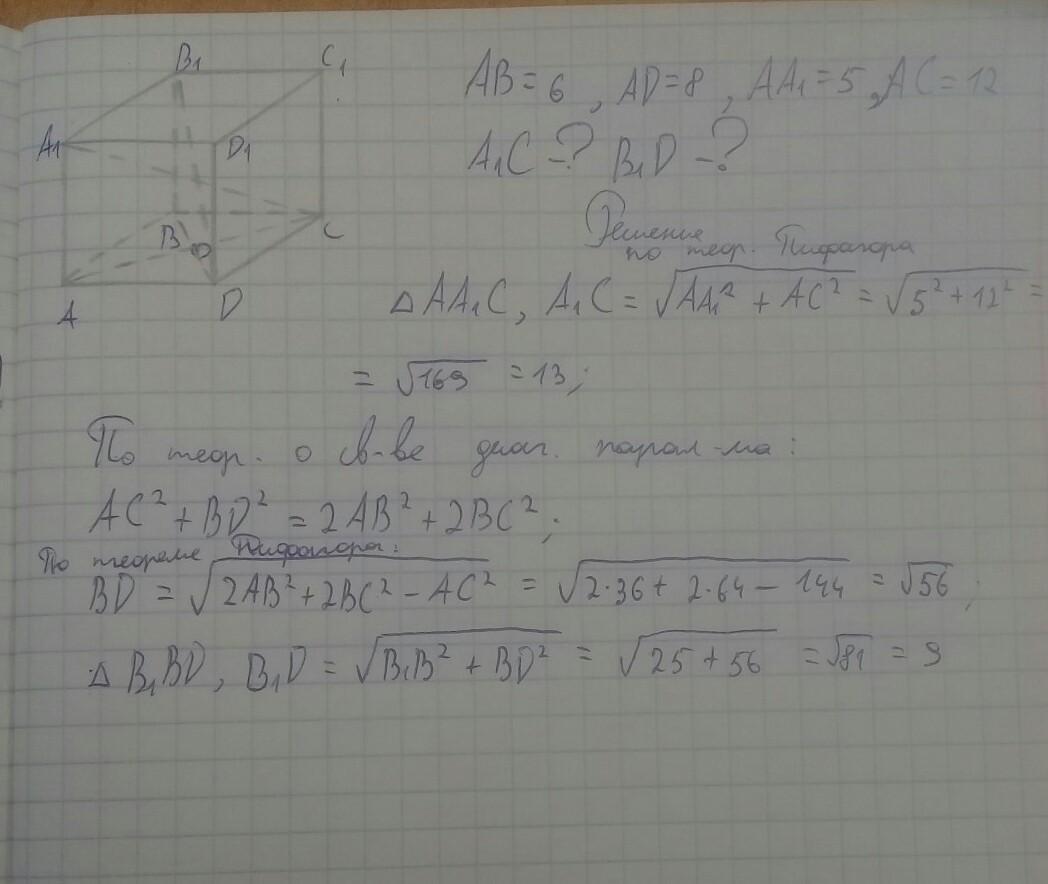 B₁ C₁
A₁ D₁
B O C
A D
AB = 6, AD = 8, AA₁ = 5, AC = 12
A₁C - ? B₁D - ?
Решение
по теор. Пифагора
△ AA₁C, A₁C = √(AA₁² + AC²) = √(5² + 12²) =
= √169 = 13;
По теор. о св-ве диаг. парал-ма:
AC² + BD² = 2AB² + 2BC²;
По теореме Пифагора:
BD = √(2AB² + 2BC² - AC²) = √(2·36 + 2·64 - 144) = √56;
△ B₁BD, B₁D = √(B₁B² + BD²) = √(25 + 56) = √81 = 9